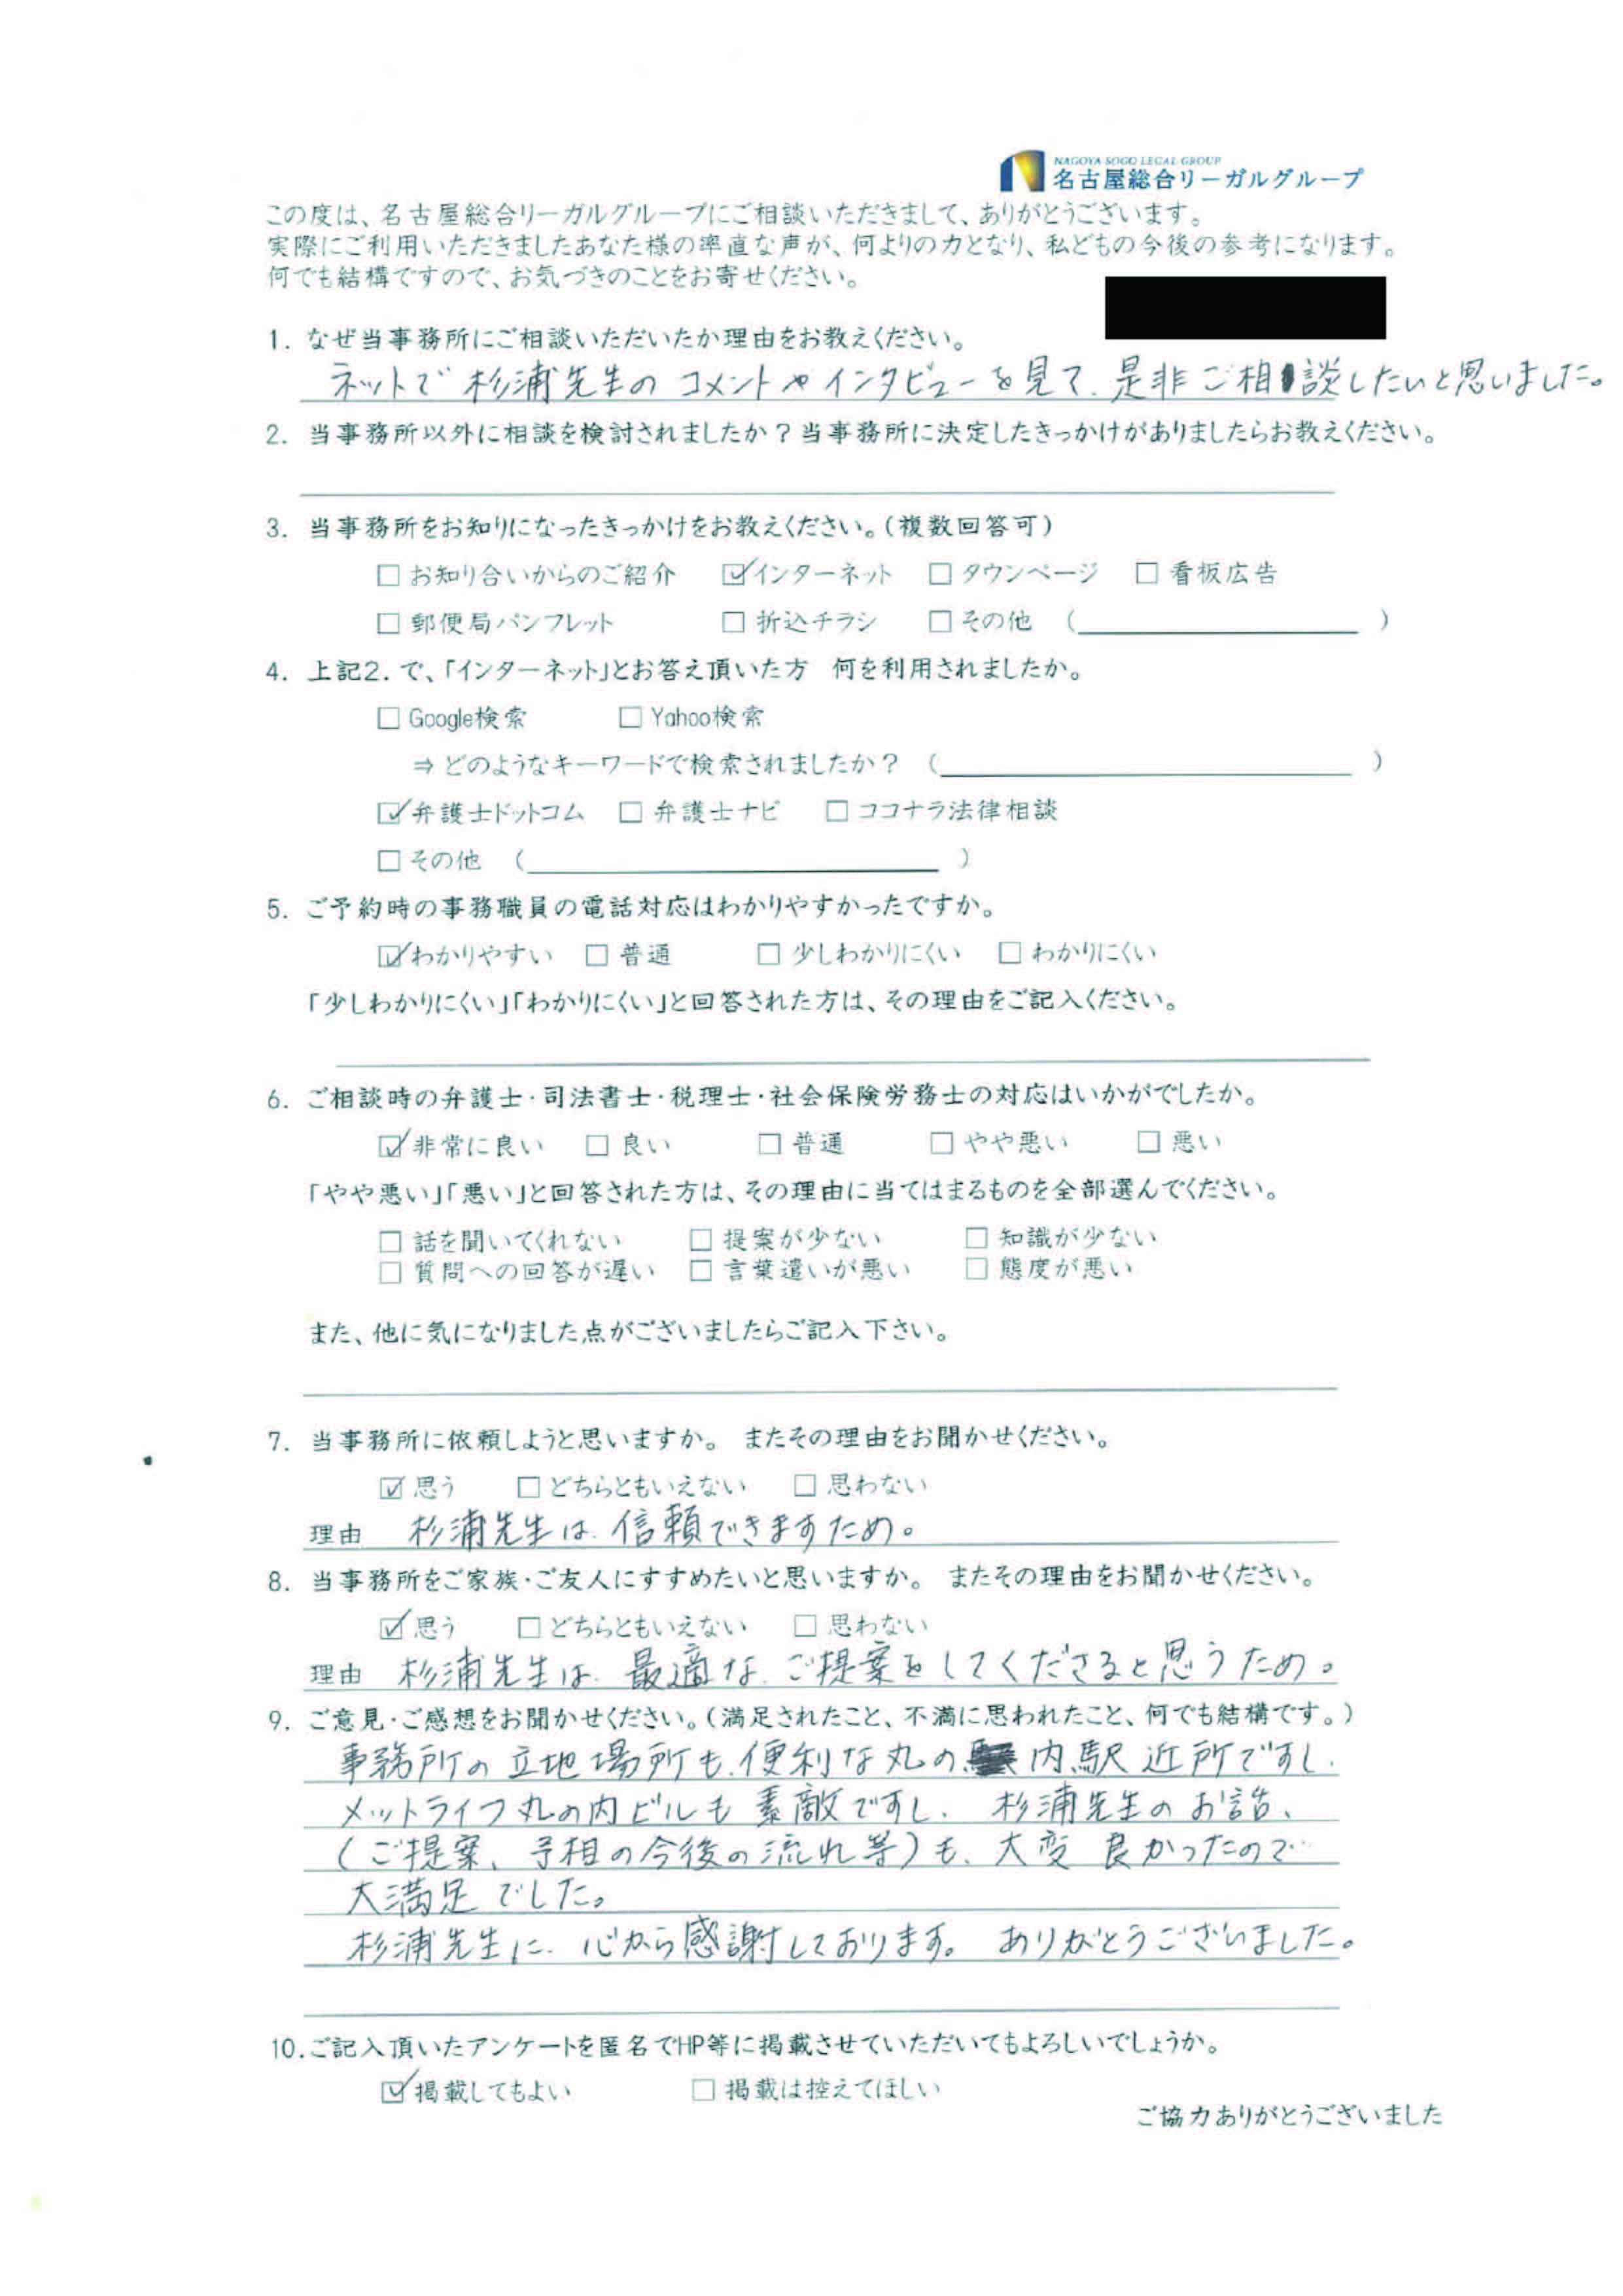 NAGOYA SOGO LEGAL GROUP
名古屋総合リーガルグループ
この度は、名古屋総合リーガルグループにご相談いただきまして、ありがとうございます。
実際にご利用いただきましたあなた様の率直な声が、何よりの力となり、私どもの今後の参考になります。
何でも結構ですので、お気づきのことをお寄せください。
1. なぜ当事務所にご相談いただいたか理由をお教えください。
ネットで杉浦先生のコメントやインタビューを見て、是非ご相談したいと思いました。
2. 当事務所以外に相談を検討されましたか？当事務所に決定したきっかけがありましたらお教えください。
3. 当事務所をお知りになったきっかけをお教えください。（複数回答可）
□ お知り合いからのご紹介 ☑インターネット □ タウンページ □ 看板広告
□ 郵便局パンフレット □ 折込チラシ □ その他 （ ）
4. 上記2. で、「インターネット」とお答え頂いた方　何を利用されましたか。
□ Google検索 □ Yahoo検索
⇒ どのようなキーワードで検索されましたか？ （ ）
☑弁護士ドットコム □ 弁護士ナビ □ ココナラ法律相談
□ その他 （ ）
5. ご予約時の事務職員の電話対応はわかりやすかったですか。
☑わかりやすい □ 普通 □ 少しわかりにくい □ わかりにくい
「少しわかりにくい」「わかりにくい」と回答された方は、その理由をご記入ください。
6. ご相談時の弁護士・司法書士・税理士・社会保険労務士の対応はいかがでしたか。
☑非常に良い □ 良い □ 普通 □ やや悪い □ 悪い
「やや悪い」「悪い」と回答された方は、その理由に当てはまるものを全部選んでください。
□ 話を聞いてくれない □ 提案が少ない □ 知識が少ない
□ 質問への回答が遅い □ 言葉遣いが悪い □ 態度が悪い
また、他に気になりました点がございましたらご記入下さい。
7. 当事務所に依頼しようと思いますか。 またその理由をお聞かせください。
☑ 思う □ どちらともいえない □ 思わない
理由 杉浦先生は、信頼できますため。
8. 当事務所をご家族・ご友人にすすめたいと思いますか。 またその理由をお聞かせください。
☑ 思う □ どちらともいえない □ 思わない
理由 杉浦先生は、最適な、ご提案をしてくださると思うため。
9. ご意見・ご感想をお聞かせください。（満足されたこと、不満に思われたこと、何でも結構です。）
事務所の立地場所も、便利な丸の内駅近所ですし、
メットライフ丸の内ビルも素敵ですし、杉浦先生のお話、
（ご提案、予相の今後の流れ等）も、大変良かったので
大満足でした。
杉浦先生に、心から感謝しております。ありがとうございました。
10.ご記入頂いたアンケートを匿名でHP等に掲載させていただいてもよろしいでしょうか。
☑掲載してもよい □ 掲載は控えてほしい
ご協力ありがとうございました